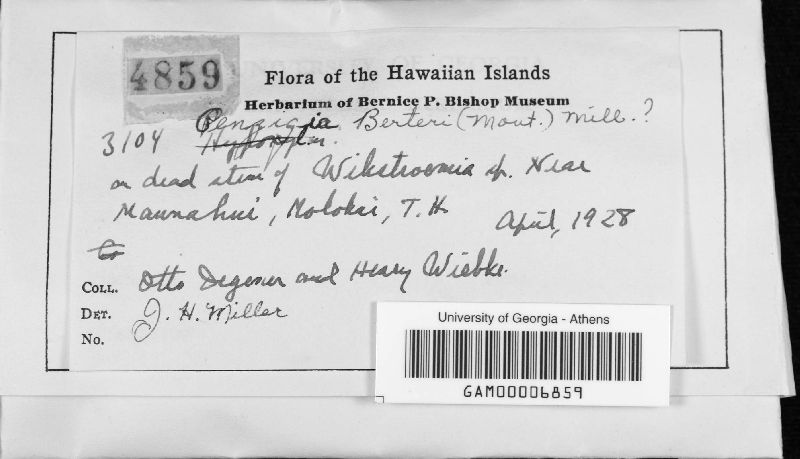 4859
Flora of the Hawaiian Islands
Herbarium of Bernice P. Bishop Museum
Penzigia Berteri (Mont.) Mill.?
3104 Hypoxylon.
on dead stem of Wikstroemia sp. Near
Maunahui, Molokai, T. H.
April, 1928
to
COLL. Otto Degener and Henry Wiebke.
DET. J. H. Miller
No.
University of Georgia - Athens
GAM00006859